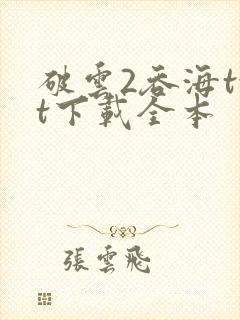 破雲2吞海t
t下載全本
張雲飛